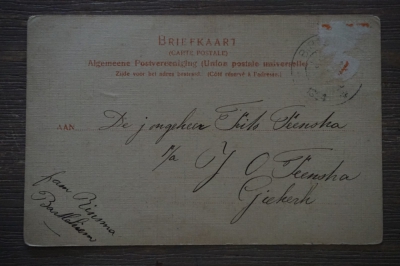 BRIEFKAART
(CARTE POSTALE)
Algemeene Postvereeniging (Union postale universelle)
Zijde voor het adres bestemd. (Côté réservé à l'adresse.)
AAN
De jongeheer Frits Feenstra
p/a Y O Feenstra
Giekerk
fam Rinsma
Bartlehiem